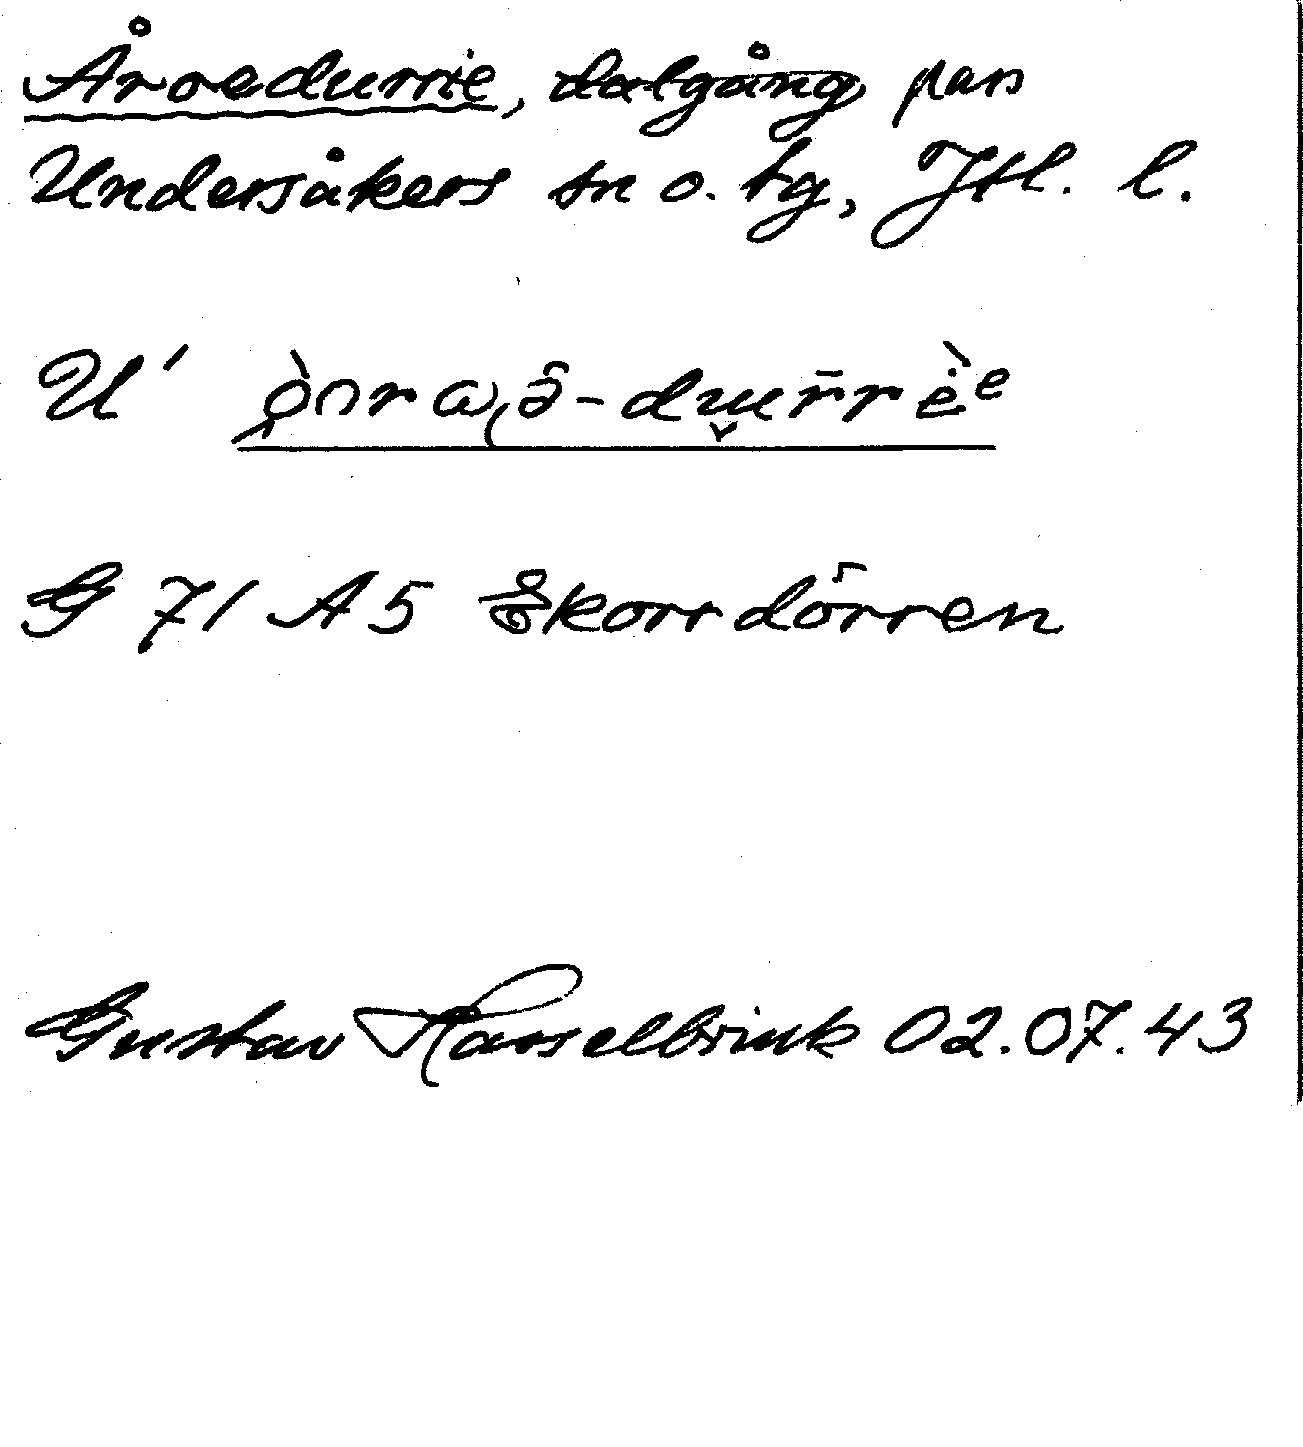 Åroedurrie, dalgång pass
Undersåkers sn o. tg, Jtl. l.
U'
G 71 A5 Skorrdörren
Gustav Hasselbrink 02.07.43